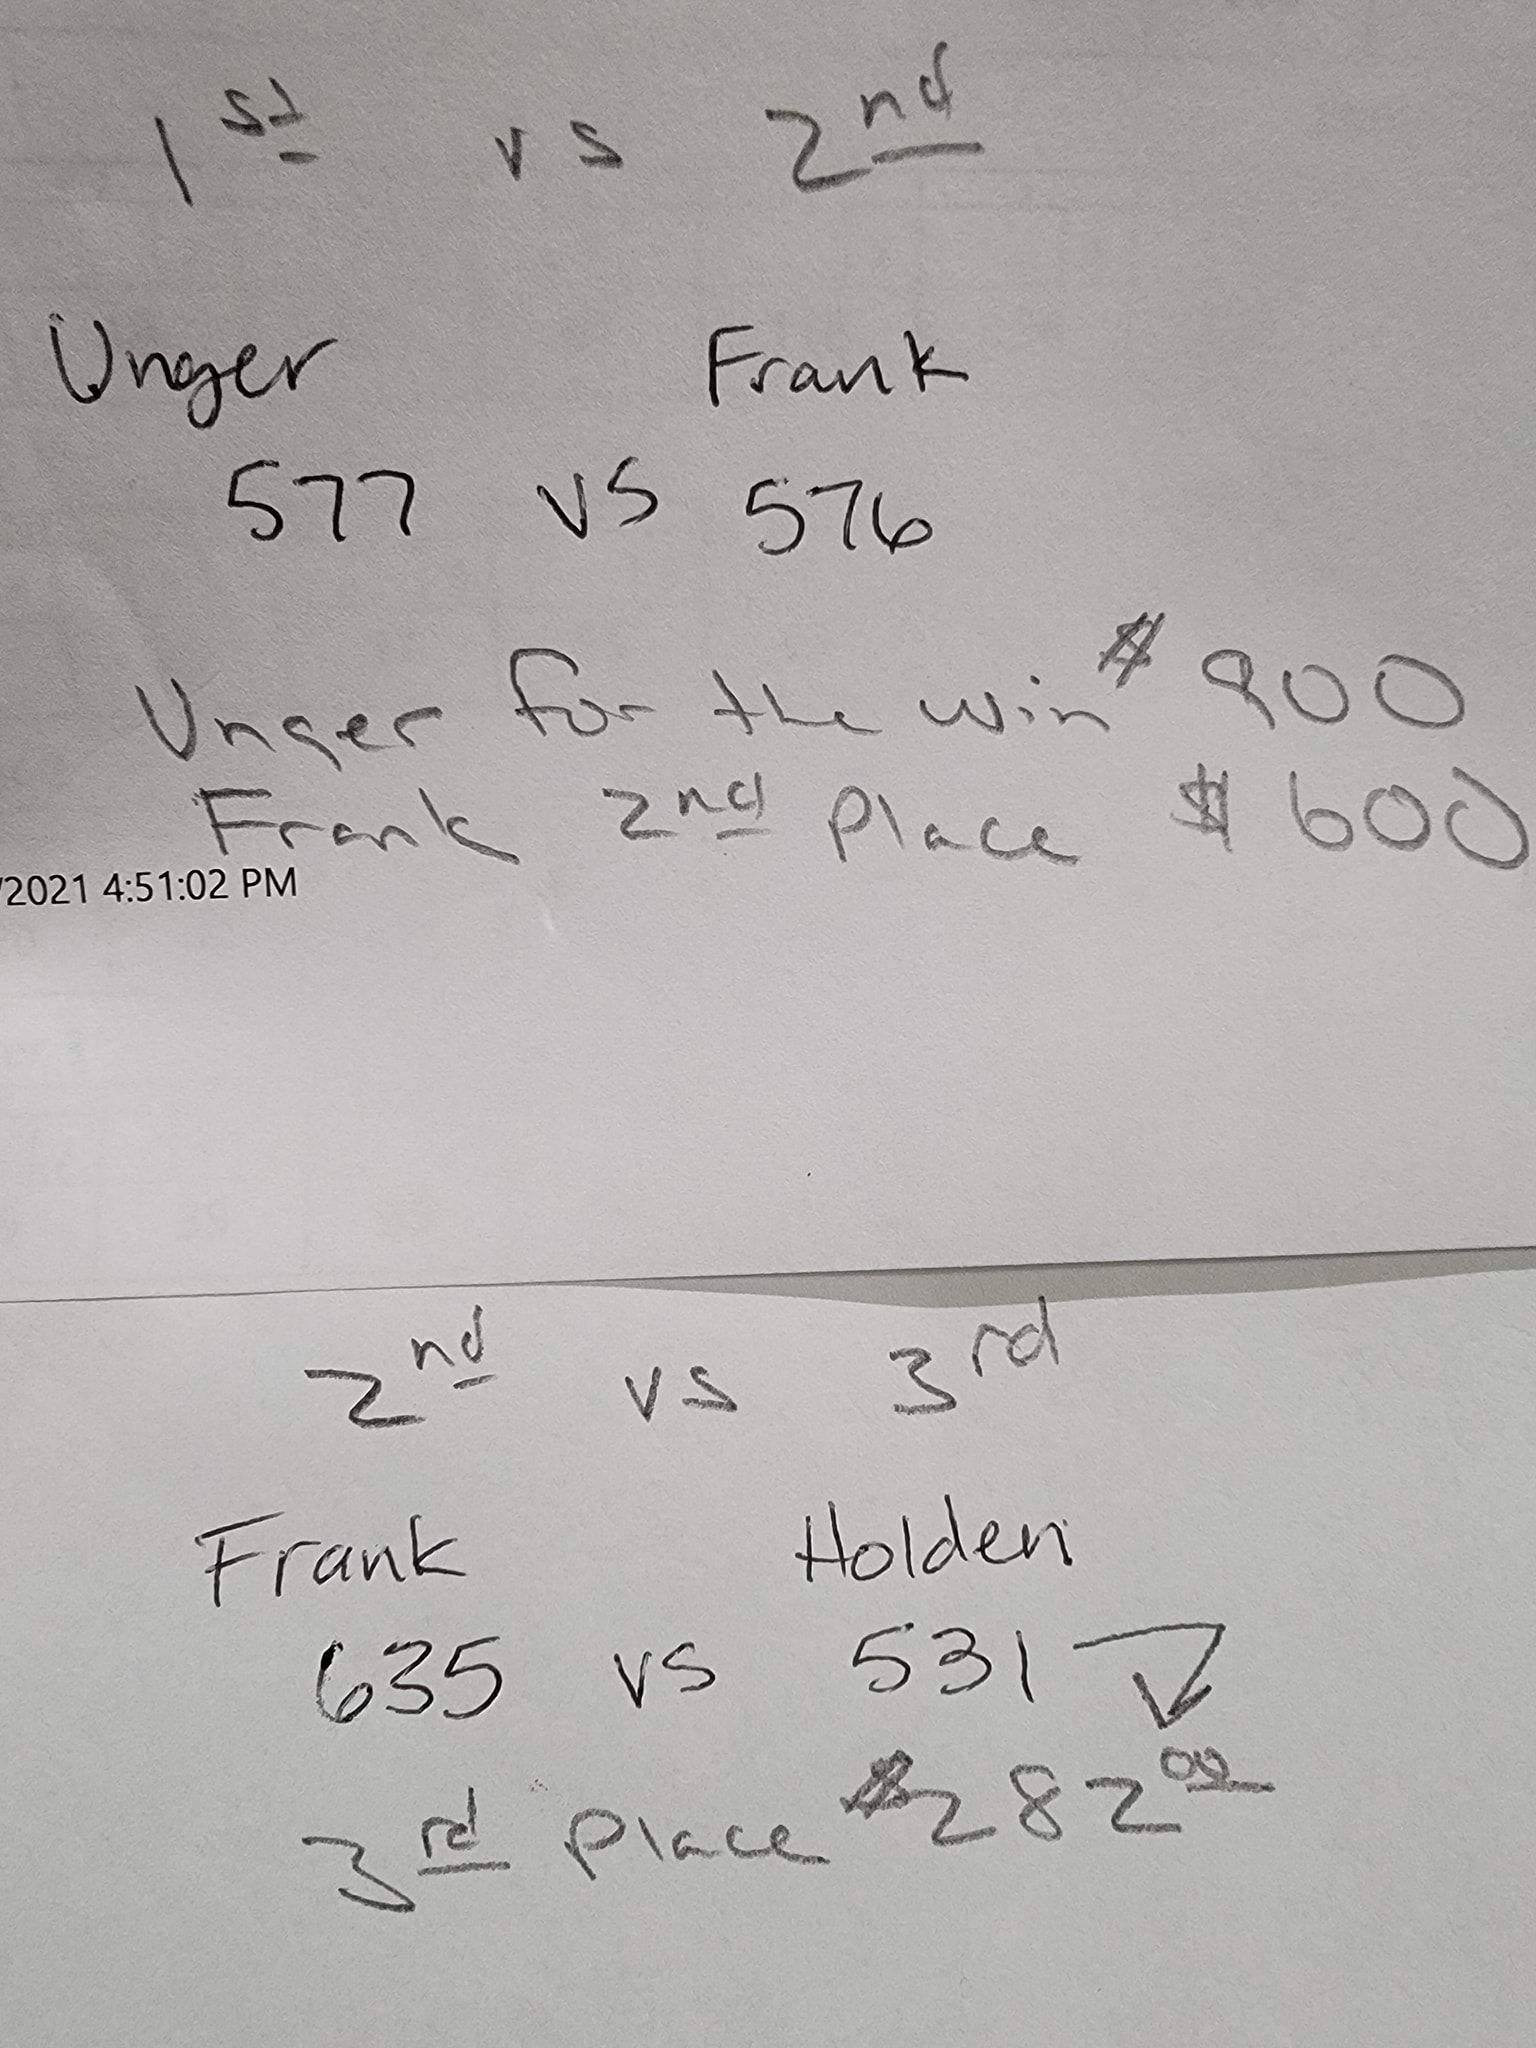 1st vs 2nd
Unger Frank
577 vs 576
Unger for the win $ 900
Frank 2nd Place $ 600
/2021 4:51:02 PM
2nd vs 3rd
Frank Holden
635 vs 531
3rd Place $282.00